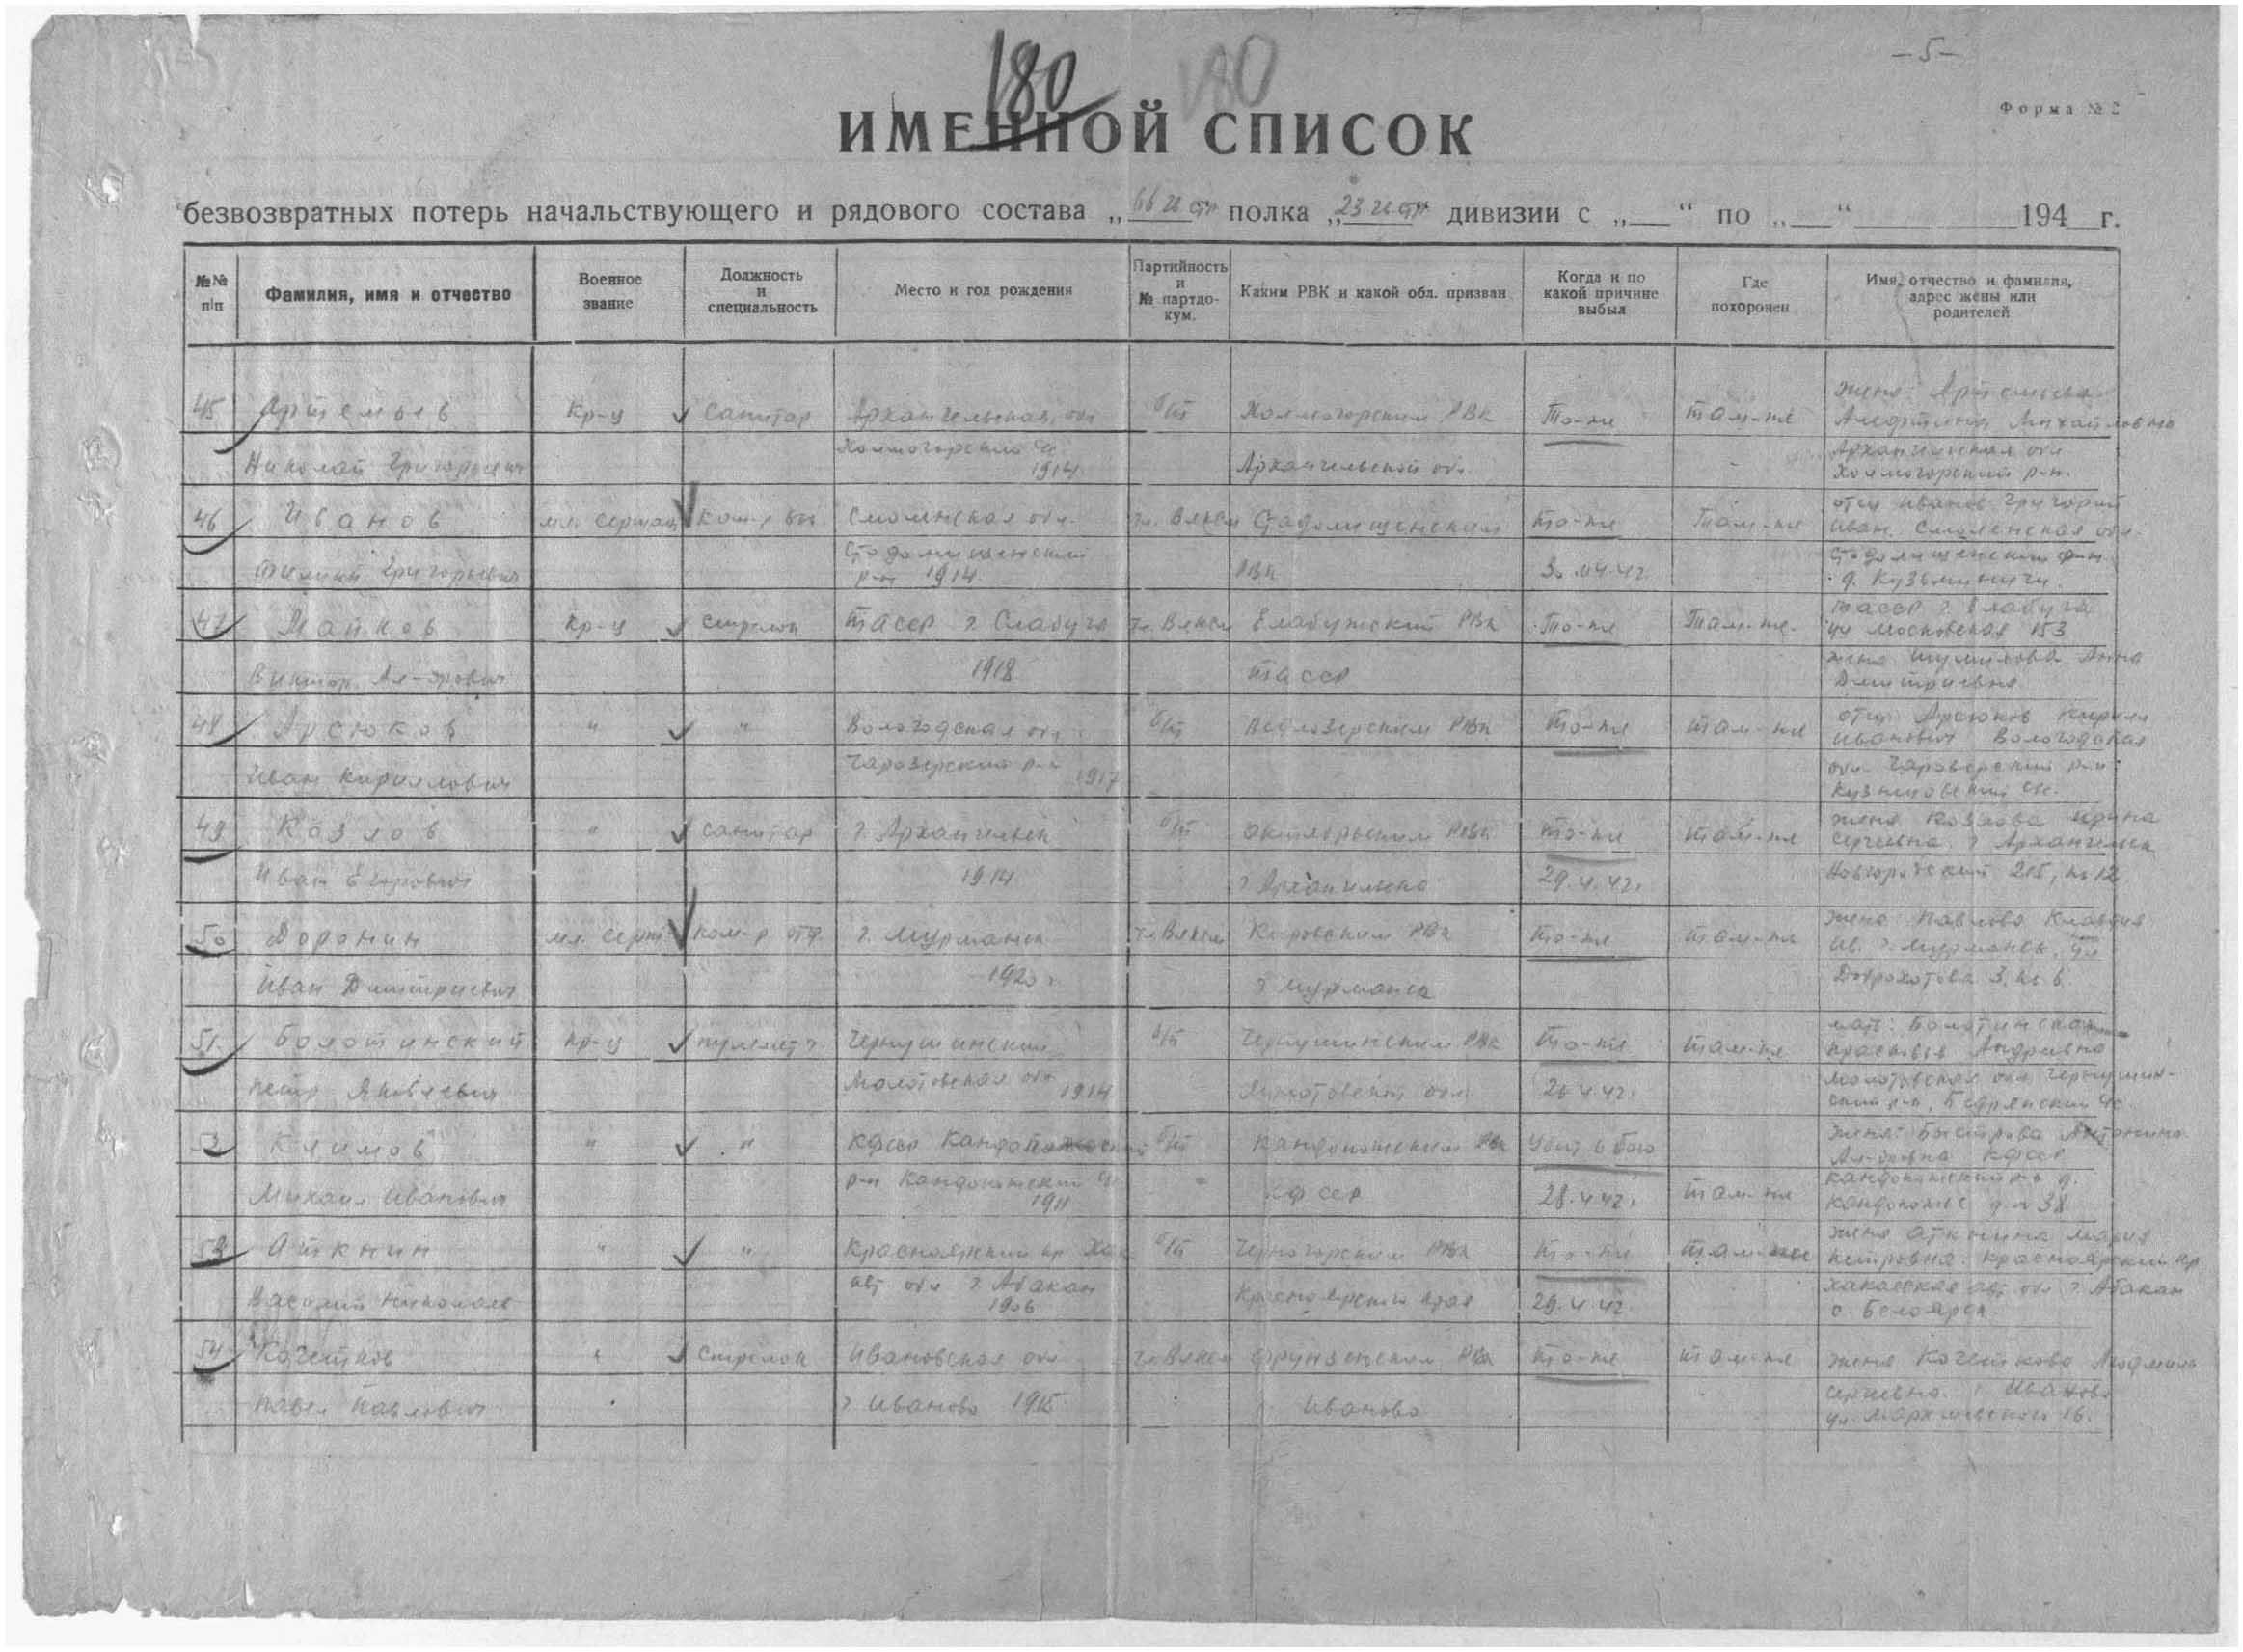 – 5 –
180 180
Форма № 2
ИМЕННОЙ СПИСОК
безвозвратных потерь начальствующего и рядового состава „ полка „ 23 дивизии с „ “ по „ “ 194 г.
№№ п/п Фамилия, имя и отчество Военное звание Должность и специальность Место и год рождения Партийность и № партдокум. Каким РВК и какой обл. призван Когда и по какой причине выбыл Где похоронен Имя, отчество и фамилия, адрес жены или родителей
45 Артемьев Кр-ц санитар Архангельская обл б/п Холмогорским РВК То-же Там-же жена Артемьева
Михайловна
Николай Григорьевич Холмогорский 1914 Архангельской обл. Архангельская обл
Холмогорский р-н.
46 Иванов мл. сержан Смоленская обл. чл. ВЛКСМ Стодолищенским то-же Там-же отец Иванов Григорий
Иван. Смоленская обл.
Григорьевич Стодолищенский р-н 1914 РВК 30.4.42 Стодолищенский р-н.
д. Кузьминичи.
47 Майков Кр-ц стрелок ТАССР г. Елабуга чл. ВЛКСМ Елабужский РВК То-же Там-же. ТАССР г. Елабуга
ул Московская 153
Виктор Ал-дрович 1918 ТАССР жена Шумилова Анна
Дмитриевна
48 Арсюков " " Вологодская обл б/п РВК То-же там-же отец Арсюков Кирилл
Иванович Вологодская
Иван Кириллович Чарозерский р-н 1917 обл. Чарозерский р-н
49 Козлов " санитар г. Архангельск б/п Октябрьским РВК то-же там-же жена Козлова Ирина
Сергеевна. г Архангельск
Иван Егорович 1914 г Архангельска 29.4.42г. Новгородский 215, кв 12
50 Доронин мл. серж ком-р отд. г. Мурманск чл ВЛКСМ Кировским РВК то-же там-же жена Павлова Клавдия
Ив. г. Мурманск, ул
Иван Дмитриевич 1920 г г Мурманск Доброхотова 3, кв 6
51. Болотинский Кр-ц Чернушинский б/п Чернушинским РВК То-же там-же мать: Болотинская
Прасковья Андреевна
Петр Яковлевич Молотовская обл 1914 Молотовской обл. 26.4.42г. Молотовская обл Чернушин-
ский р-н,
52 Климов " " КФССР б/п Кандопожским РВК Убит в бою жена: Быстрова Антонина
Ал-дровна КФССР
Михаил Иванович р-н Кандопожский 1911 КФССР 28.4.42г. там-же Кандопожский р-н д.
38
53 Аткнин " " Красноярский кр. Хак б/п Черногорским РВК то-же там-же жена Аткнина Мария
Петровна. Красноярский кр
Василий Николаев авт обл г. Абакан 1906 Красноярский края 29.4.42 Хакасская авт. обл г. Абакан
с. Белоярск.
54 Кочетков " стрелок Ивановская обл чл ВЛКСМ Фрунзенским РВК то-же там-же жена Кочеткова Людмила
Павел Павлович г Иваново 1915 г Иваново Сергеевна. г Иваново
ул. 16.